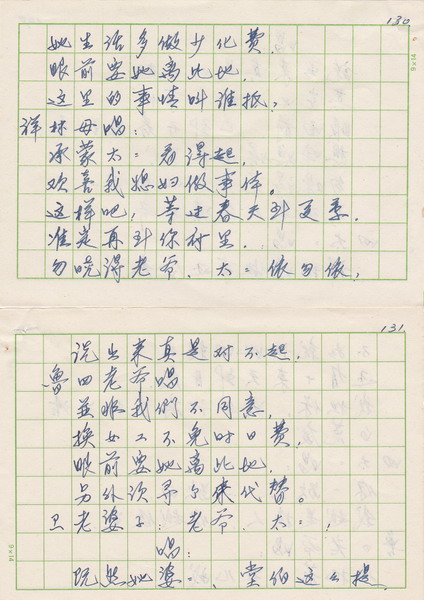 130
她生活多做少化费
眼前要她离此地,
这里的事情叫谁抵,
祥林母唱:
承蒙太=看得起,
欢喜我媳妇做事体。
这样吧,等过春天到夏季,
准定再到你村里,
勿晓得老爷、太=依勿依,
9×14
131
说出来真是对不起,
鲁四老爷唱
並非我們不同意,
换女工不免时日费,
眼前要她离此地,
另外须寻个来代替。
卫老婆子: 老爷、太=,
唱:
既然她婆=、堂伯这么提,
9×14